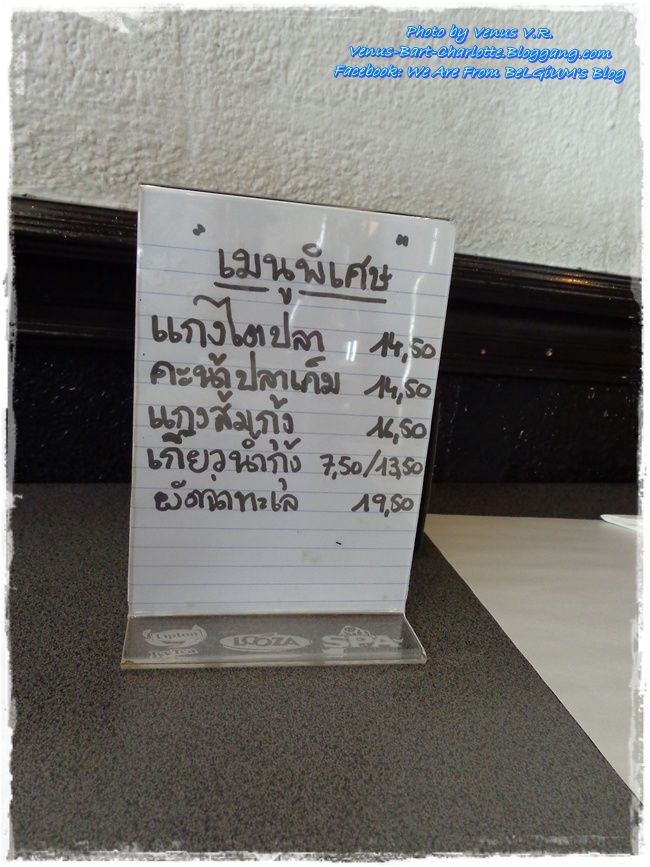 Photo by Venus V.R.
Venus-Bart-Charlotte.Bloggang.com
Facebook: We Are From BeLGiUM's Blog
"เมนูพิเศษ"
แกงไตปลา 14,50
คะน้าปลาเค็ม 14,50
แกงส้มกุ้ง 16,50
เกี๊ยวน้ำกุ้ง 7,50/13,50
ผัดฉ่าทะเล 19,50
Lipton LOOZA SPA
Ice Tea